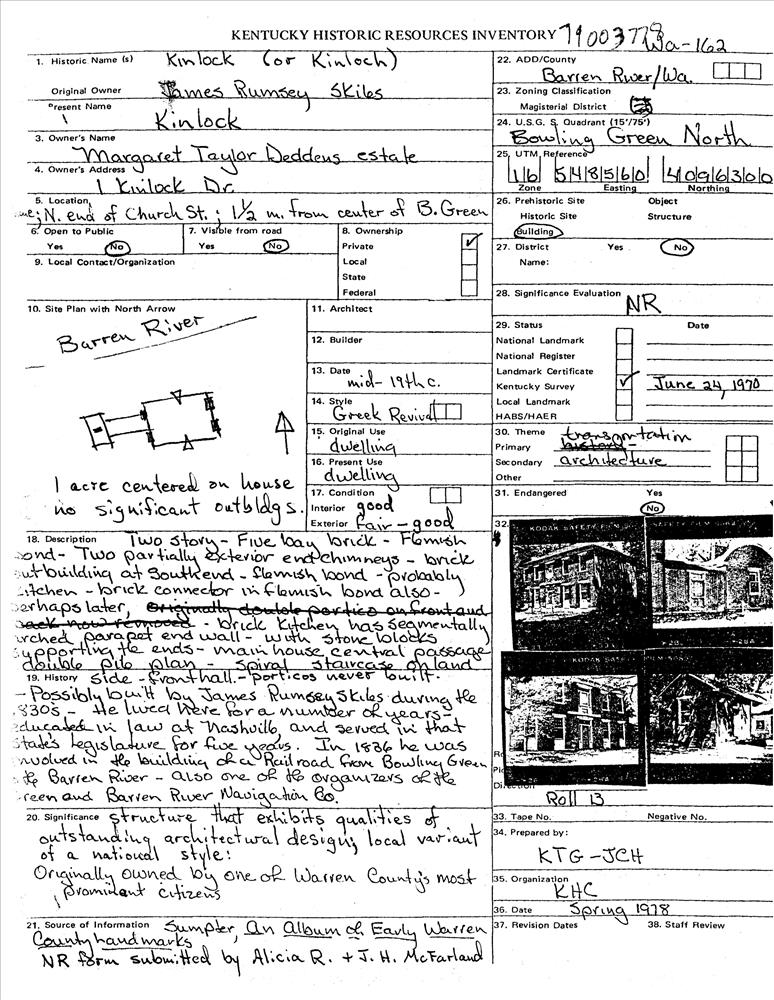 KENTUCKY HISTORIC RESOURCES INVENTORY 79003778
Wa-162
1. Historic Name (s) Kinlock (or Kinloch)
Original Owner James Rumsey Skiles
Present Name
Kinlock
3. Owner's Name
Margaret Taylor Deddens estate
4. Owner's Address
1 Kinlock Dr.
5. Location
N. end of Church St.; 1½ m. from center of B. Green
6. Open to Public
Yes No
7. Visible from road
Yes No
8. Ownership
Private
Local
State
Federal
9. Local Contact/Organization
10. Site Plan with North Arrow
Barren River
1 acre centered on house
no significant outbldgs.
11. Architect
12. Builder
13. Date
mid-19th c.
14. Style
Greek Revival
15. Original Use
dwelling
16. Present Use
dwelling
17. Condition
Interior good
Exterior fair-good
18. Description Two story - Five bay brick - Flemish
ond - Two partially exterior end chimneys - brick
utbuilding at South end - flemish bond - probably
itchen - brick connector in flemish bond also -
erhaps later, originally double portico on front and
back now removed - brick kitchen has segmentally
rched parapet end wall - with stone blocks
upporting the ends - main house central passage
double pile plan - spiral staircase on land
side - front hall. - porticos never built.
19. History
- Possibly built by James Rumsey Skiles during the
830s - He lived here for a number of years -
ducated in law at Nashville, and served in that
State's legislature for five years. In 1836 he was
nvolved in the building of a Railroad from Bowling Green
to the Barren River - also one of the organizers of the
reen and Barren River Navigation Co.
20. Significance structure that exhibits qualities of
outstanding architectural design; local variant
of a national style:
Originally owned by one of Warren County's most
prominent citizens
21. Source of Information Sumpter, An Album of Early Warren
County Landmarks
NR form submitted by Alicia R. + J. H. McFarland
22. ADD/County
Barren River/Wa.
23. Zoning Classification
Magisterial District
24. U.S.G. S. Quadrant (15'/75')
Bowling Green North
25. UTM Reference
16 548560 4096300
Zone Easting Northing
26. Prehistoric Site Object
Historic Site Structure
Building
27. District Yes No
Name:
28. Significance Evaluation
NR
29. Status Date
National Landmark
National Register
Landmark Certificate
Kentucky Survey June 24, 1970
Local Landmark
HABS/HAER
30. Theme transportation
Primary history
Secondary architecture
Other
31. Endangered Yes
No
32.
KODAK SAFETY FILM
Roll 13
33. Tape No. Negative No.
34. Prepared by:
KTG-JCH
35. Organization
KHC
36. Date Spring 1978
37. Revision Dates 38. Staff Review